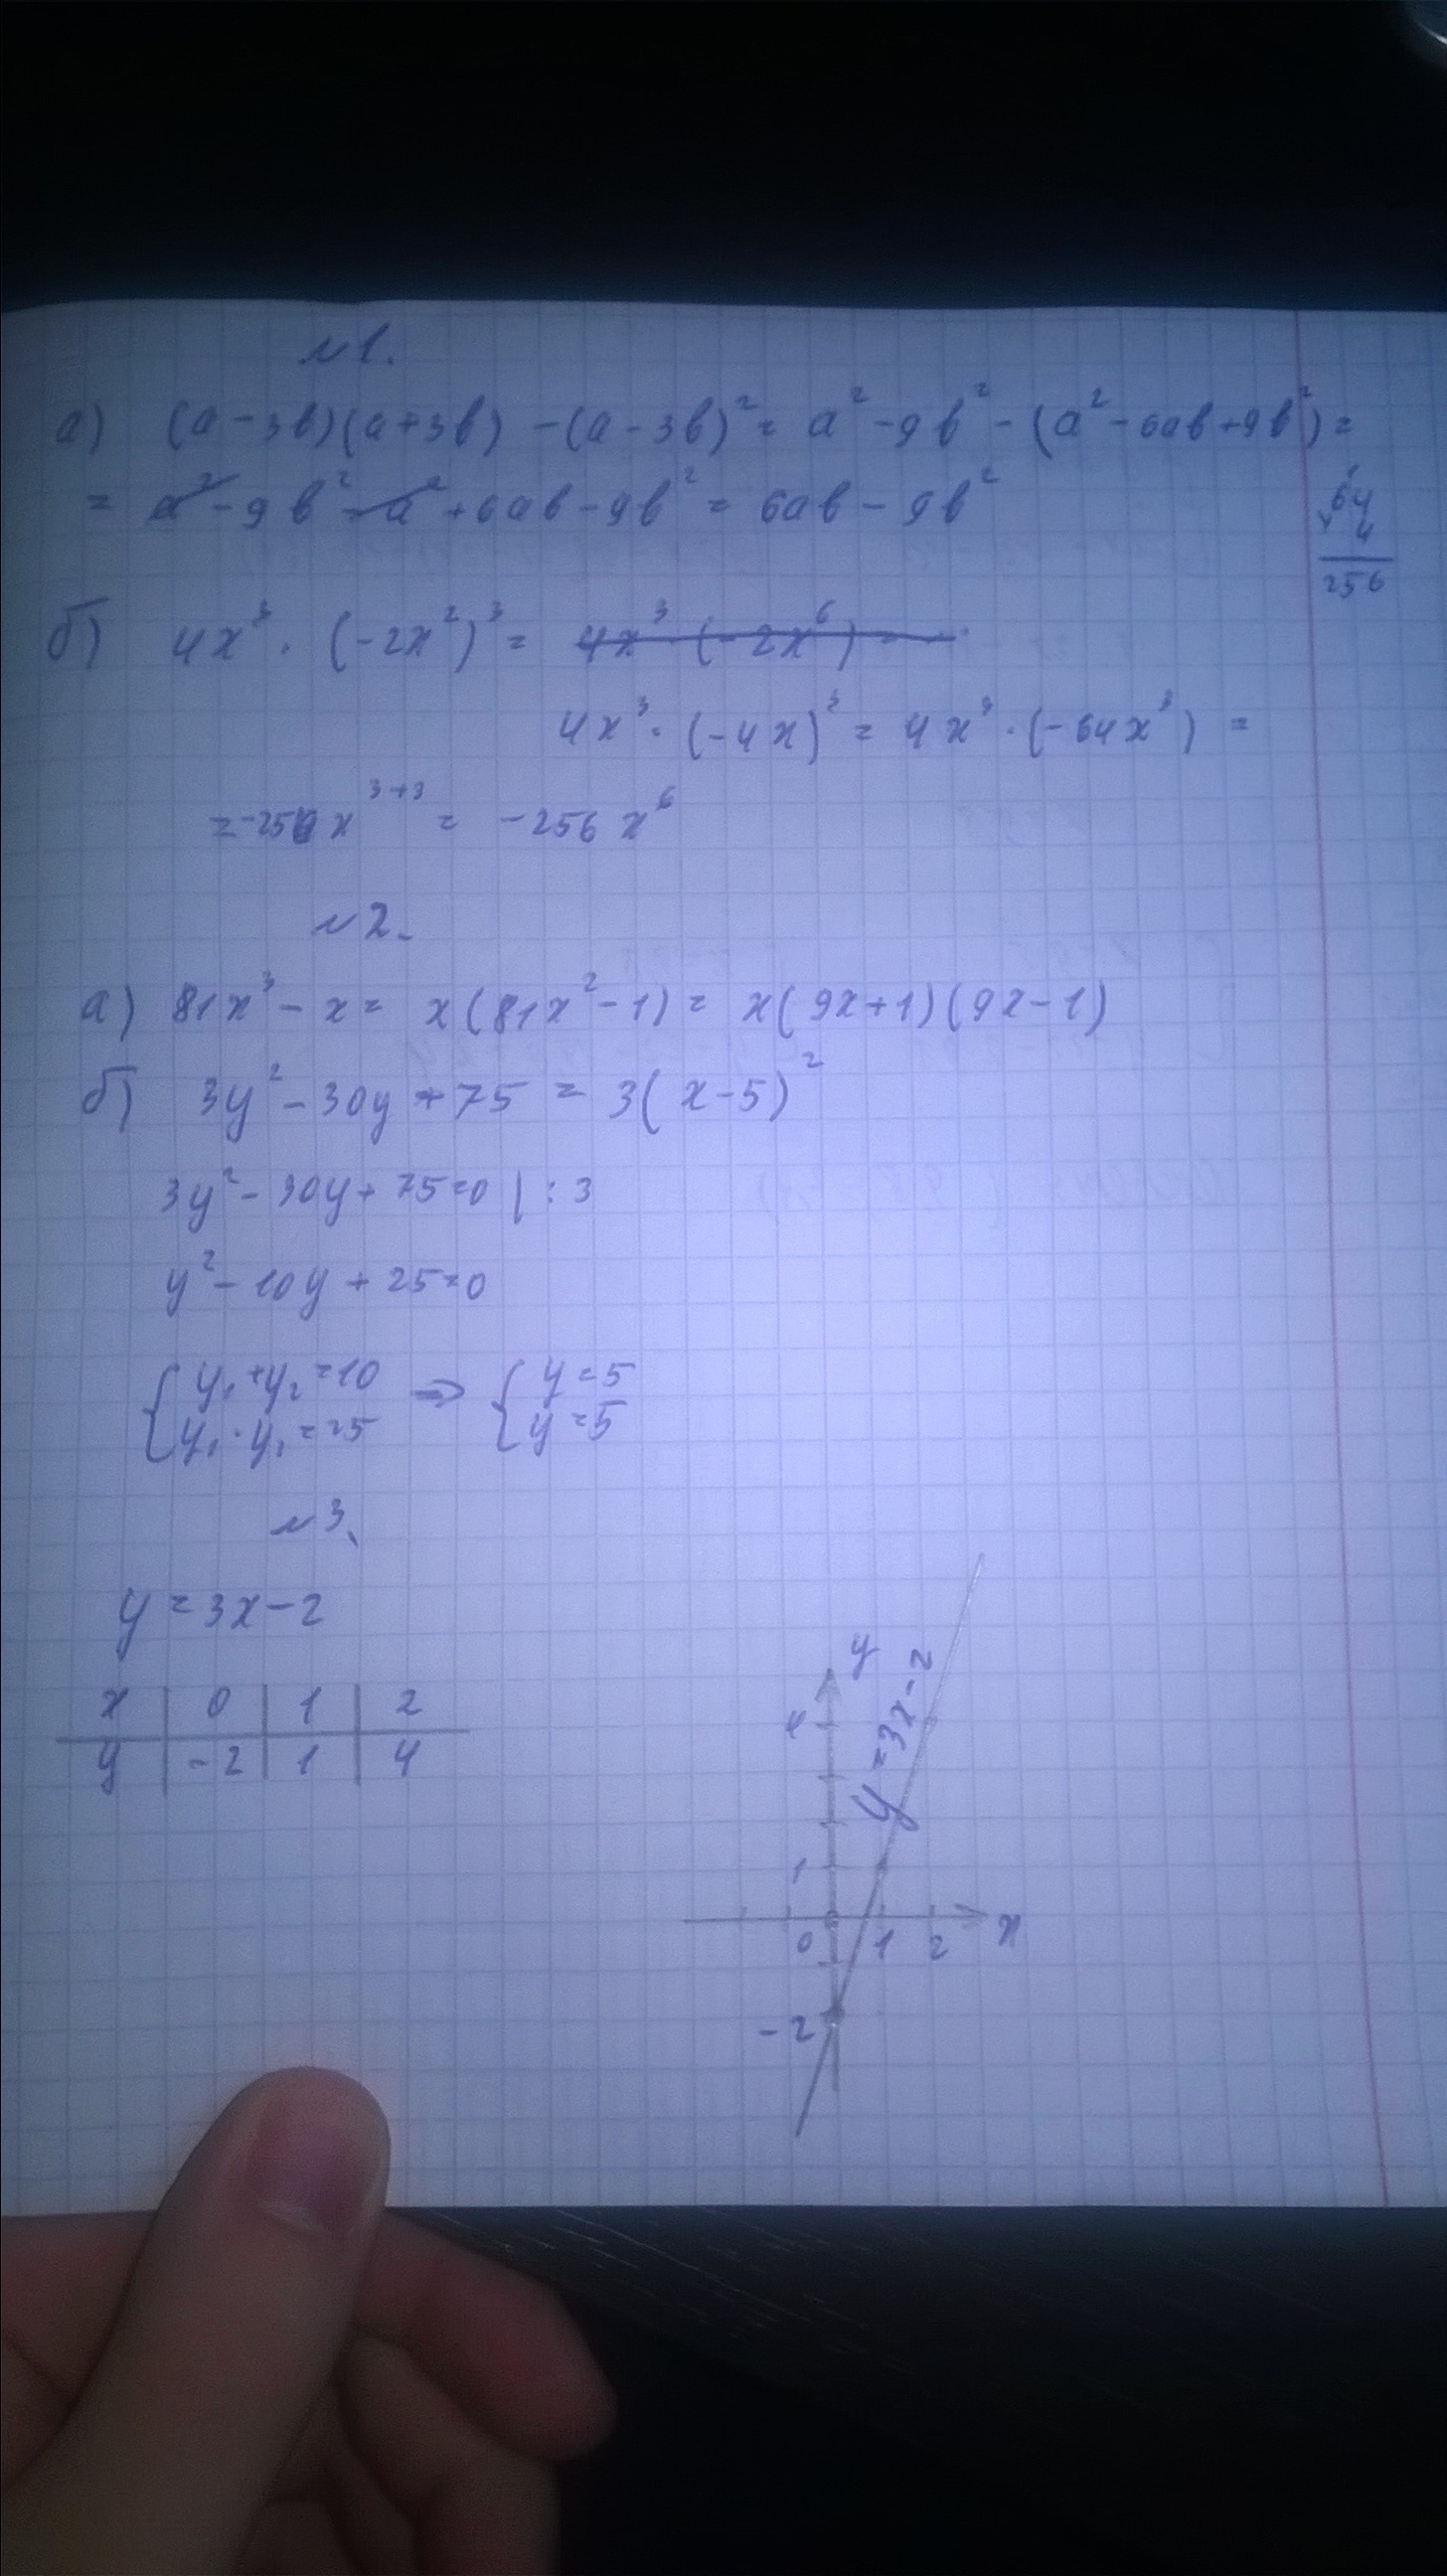 №1.
а) (a-3b)(a+3b) -(a-3b)² = a² -9b² - (a² -6ab+9b²) =
= a² -9b² -a² +6ab-9b² = 6ab - 9b²
64
× 4
256
б) 4x³ · (-2x²)³ = 4x³ (-2x⁶) =
4x³ · (-4x)³ = 4x³ · (-64x³) =
= -256x³⁺³ = -256x⁶
№2.
а) 81x³ - x = x(81x² -1) = x(9x+1)(9x-1)
б) 3y² -30y +75 = 3(x-5)²
3y² - 30y + 75=0 | : 3
y² - 10y + 25=0
{ y₁ + y₂ = 10 ⇒ { y = 5
y₁ · y₂ = 25 y = 5
№3.
y = 3x-2
x | 0 | 1 | 2
y | -2 | 1 | 4
y
4
y = 3x-2
1
0 1 2 x
-2